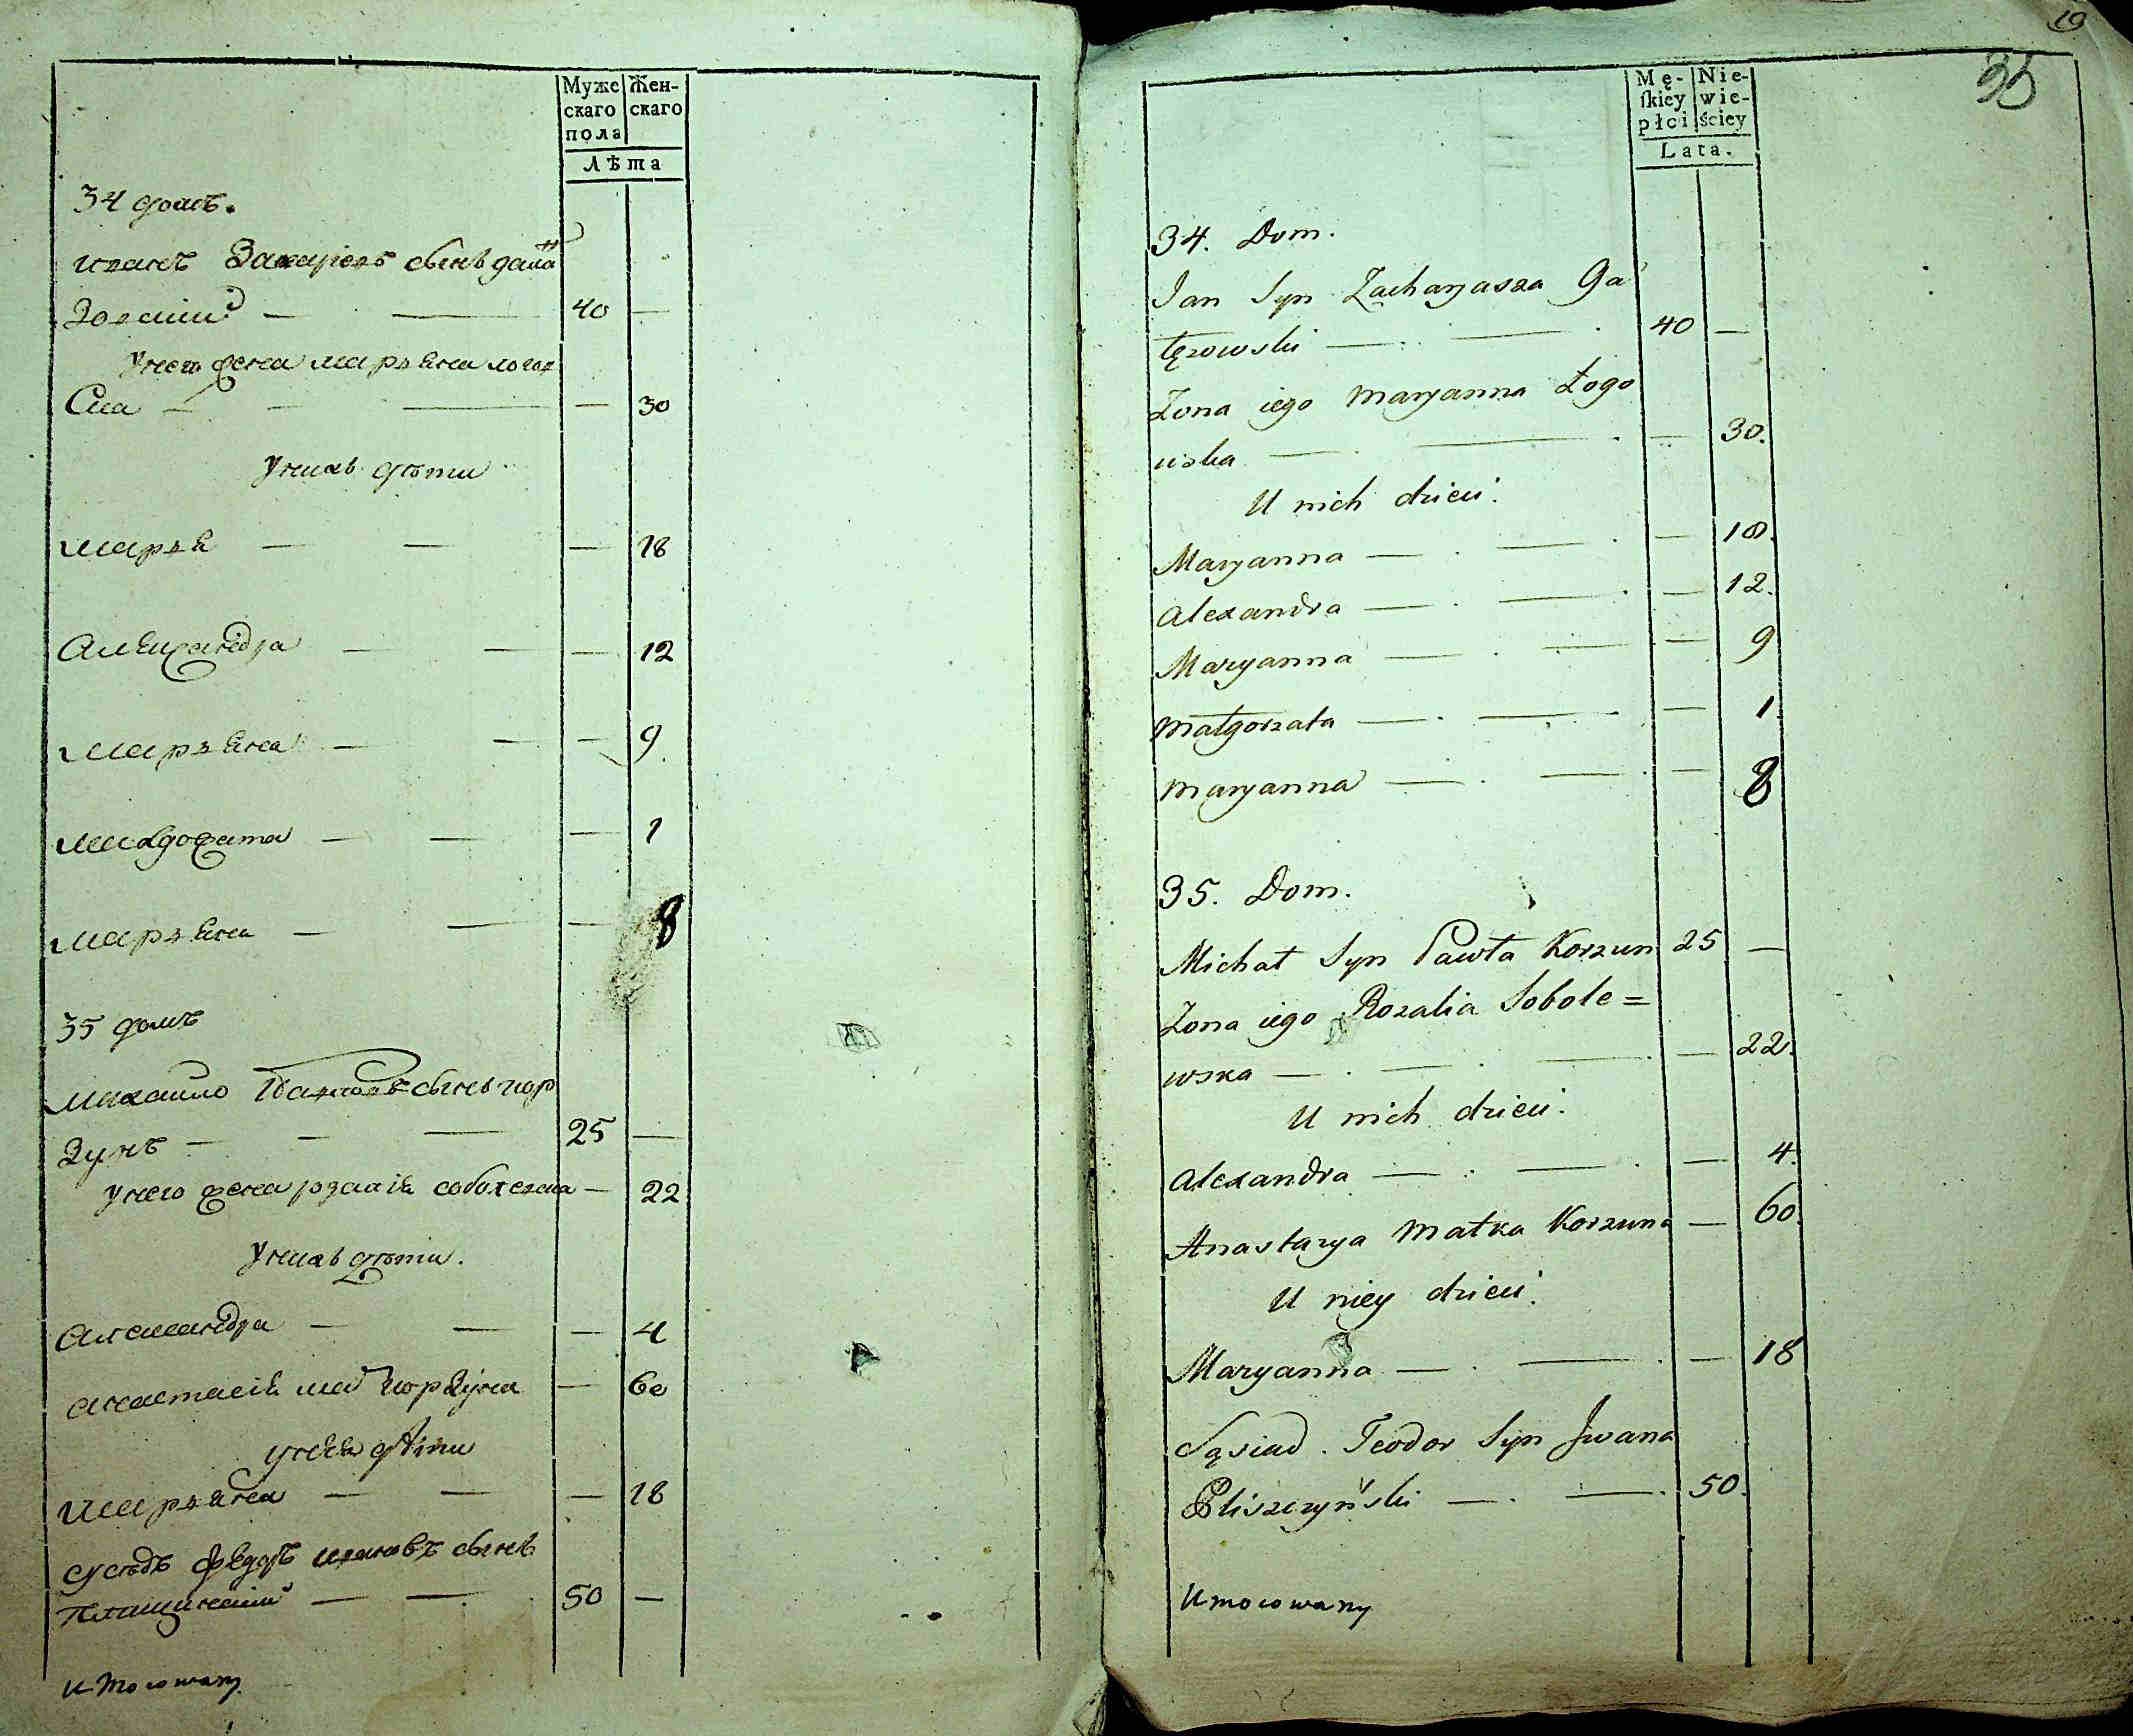 Муже
скаго
пола
Жен-
скаго
Лѣта
34 домъ.
Иванъ Захаріевъ сынъ
40 —
У него жена Марьяна
ска — — — — 30
У нихъ дѣти
Марья — — — 18
Александра — — — 12
Марьяна — — — 9.
— — — 1
Марьяна — — — 8
35 домъ
Михайло Павловъ сынъ Кор
зунъ — — — 25 —
У него жена Розалія Соболевска — 22
У нихъ дѣти.
Александра — — — 4
Анастасія Корзуна — 60
У нея дѣти
Марьяна — — — 18
Сусѣдъ Федоръ Ивановъ сынъ
— — 50 —
Umocowany
19
35
Mę-
ſkiey
płci
Nie-
wie-
ściey
Lata.
34. Dom.
Jan Syn Zacharyasza Ga
łęzowski — — 40 —
Zona iego Maryanna Łogo
wska — — — 30.
U nich dzieci:
Maryanna — — — 18.
Alexandra — — — 12.
Maryanna — — — 9
Małgorzata — — — 1
Maryanna — — — 8
35. Dom.
Michał Syn Pawła Korzun 25 —
Zona iego Rozalia Sobole=
wska — — — — 22.
U nich dzieci:
Alexandra — — — 4.
Anastazya Matka Korzuna — 60.
U niey dzieci:
Maryanna — — — 18
Sąsiad. Teodor Syn Jwana
Pliszczyński — — 50.
Umocowany